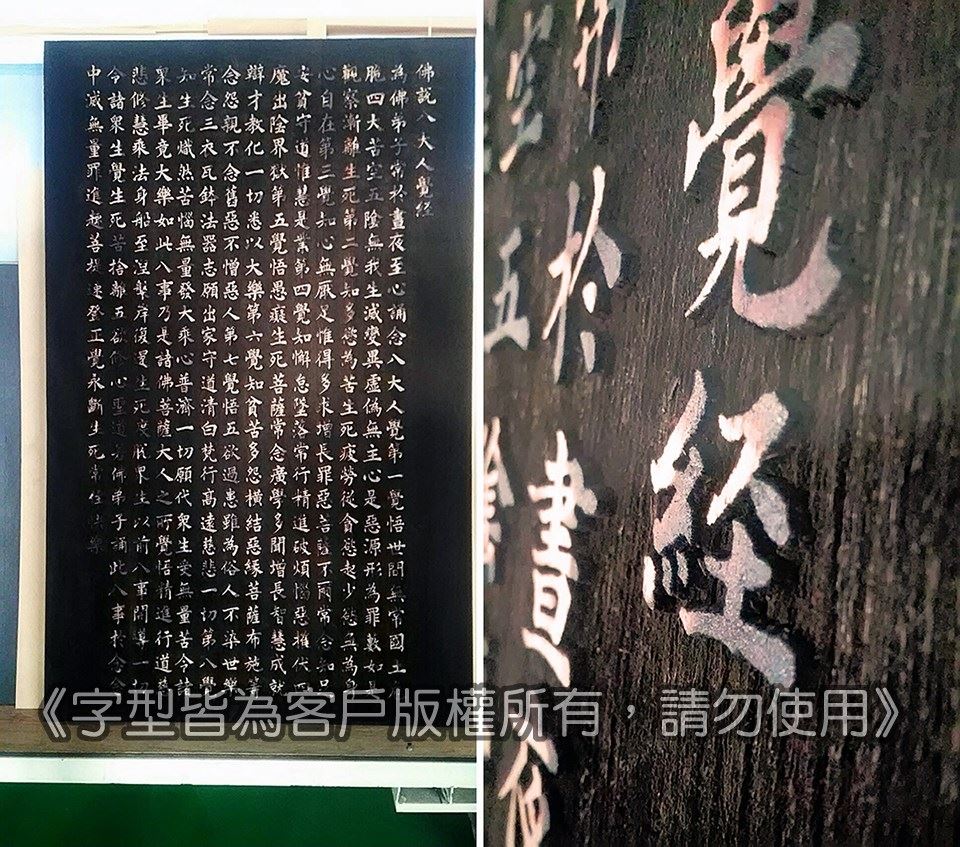 佛說八大人覺經
為佛弟子常於晝夜至心誦念八大人覺第一覺悟世間無常國土
脆四大苦空五陰無我生滅變異虛偽無主心是惡源形為罪藪如是
觀察漸離生死第二覺知多慾為苦生死疲勞從貪慾起少慾無為身
心自在第三覺知心無厭足惟得多求增長罪惡菩薩不爾常念知足
安貧守道惟慧是業第四覺知懈怠墜落常行精進破煩惱惡摧伏四
魔出陰界獄第五覺悟愚癡生死菩薩常念廣學多聞增長智慧成就
辯才教化一切悉以大樂第六覺知貧苦多怨橫結惡緣菩薩布施等
念怨親不念舊惡不憎惡人第七覺悟五欲過患雖為俗人不染世樂
常念三衣瓦鉢法器志願出家守道清白梵行高遠慈悲一切第八覺
知生死熾然苦惱無量發大乘心普濟一切願代衆生受無量苦令諸
衆生畢竟大樂如此八事乃是諸佛菩薩大人之所覺悟精進行道慈
悲修慧乘法身船至涅槃岸復還生死度脫衆生以前八事開導一切
令諸衆生覺生死苦捨離五欲修心聖道若佛弟子誦此八事於念念
中滅無量罪進趣菩提速登正覺永斷生死常住快樂
覺經
於晝
五陰
《字型皆為客戶版權所有，請勿使用》